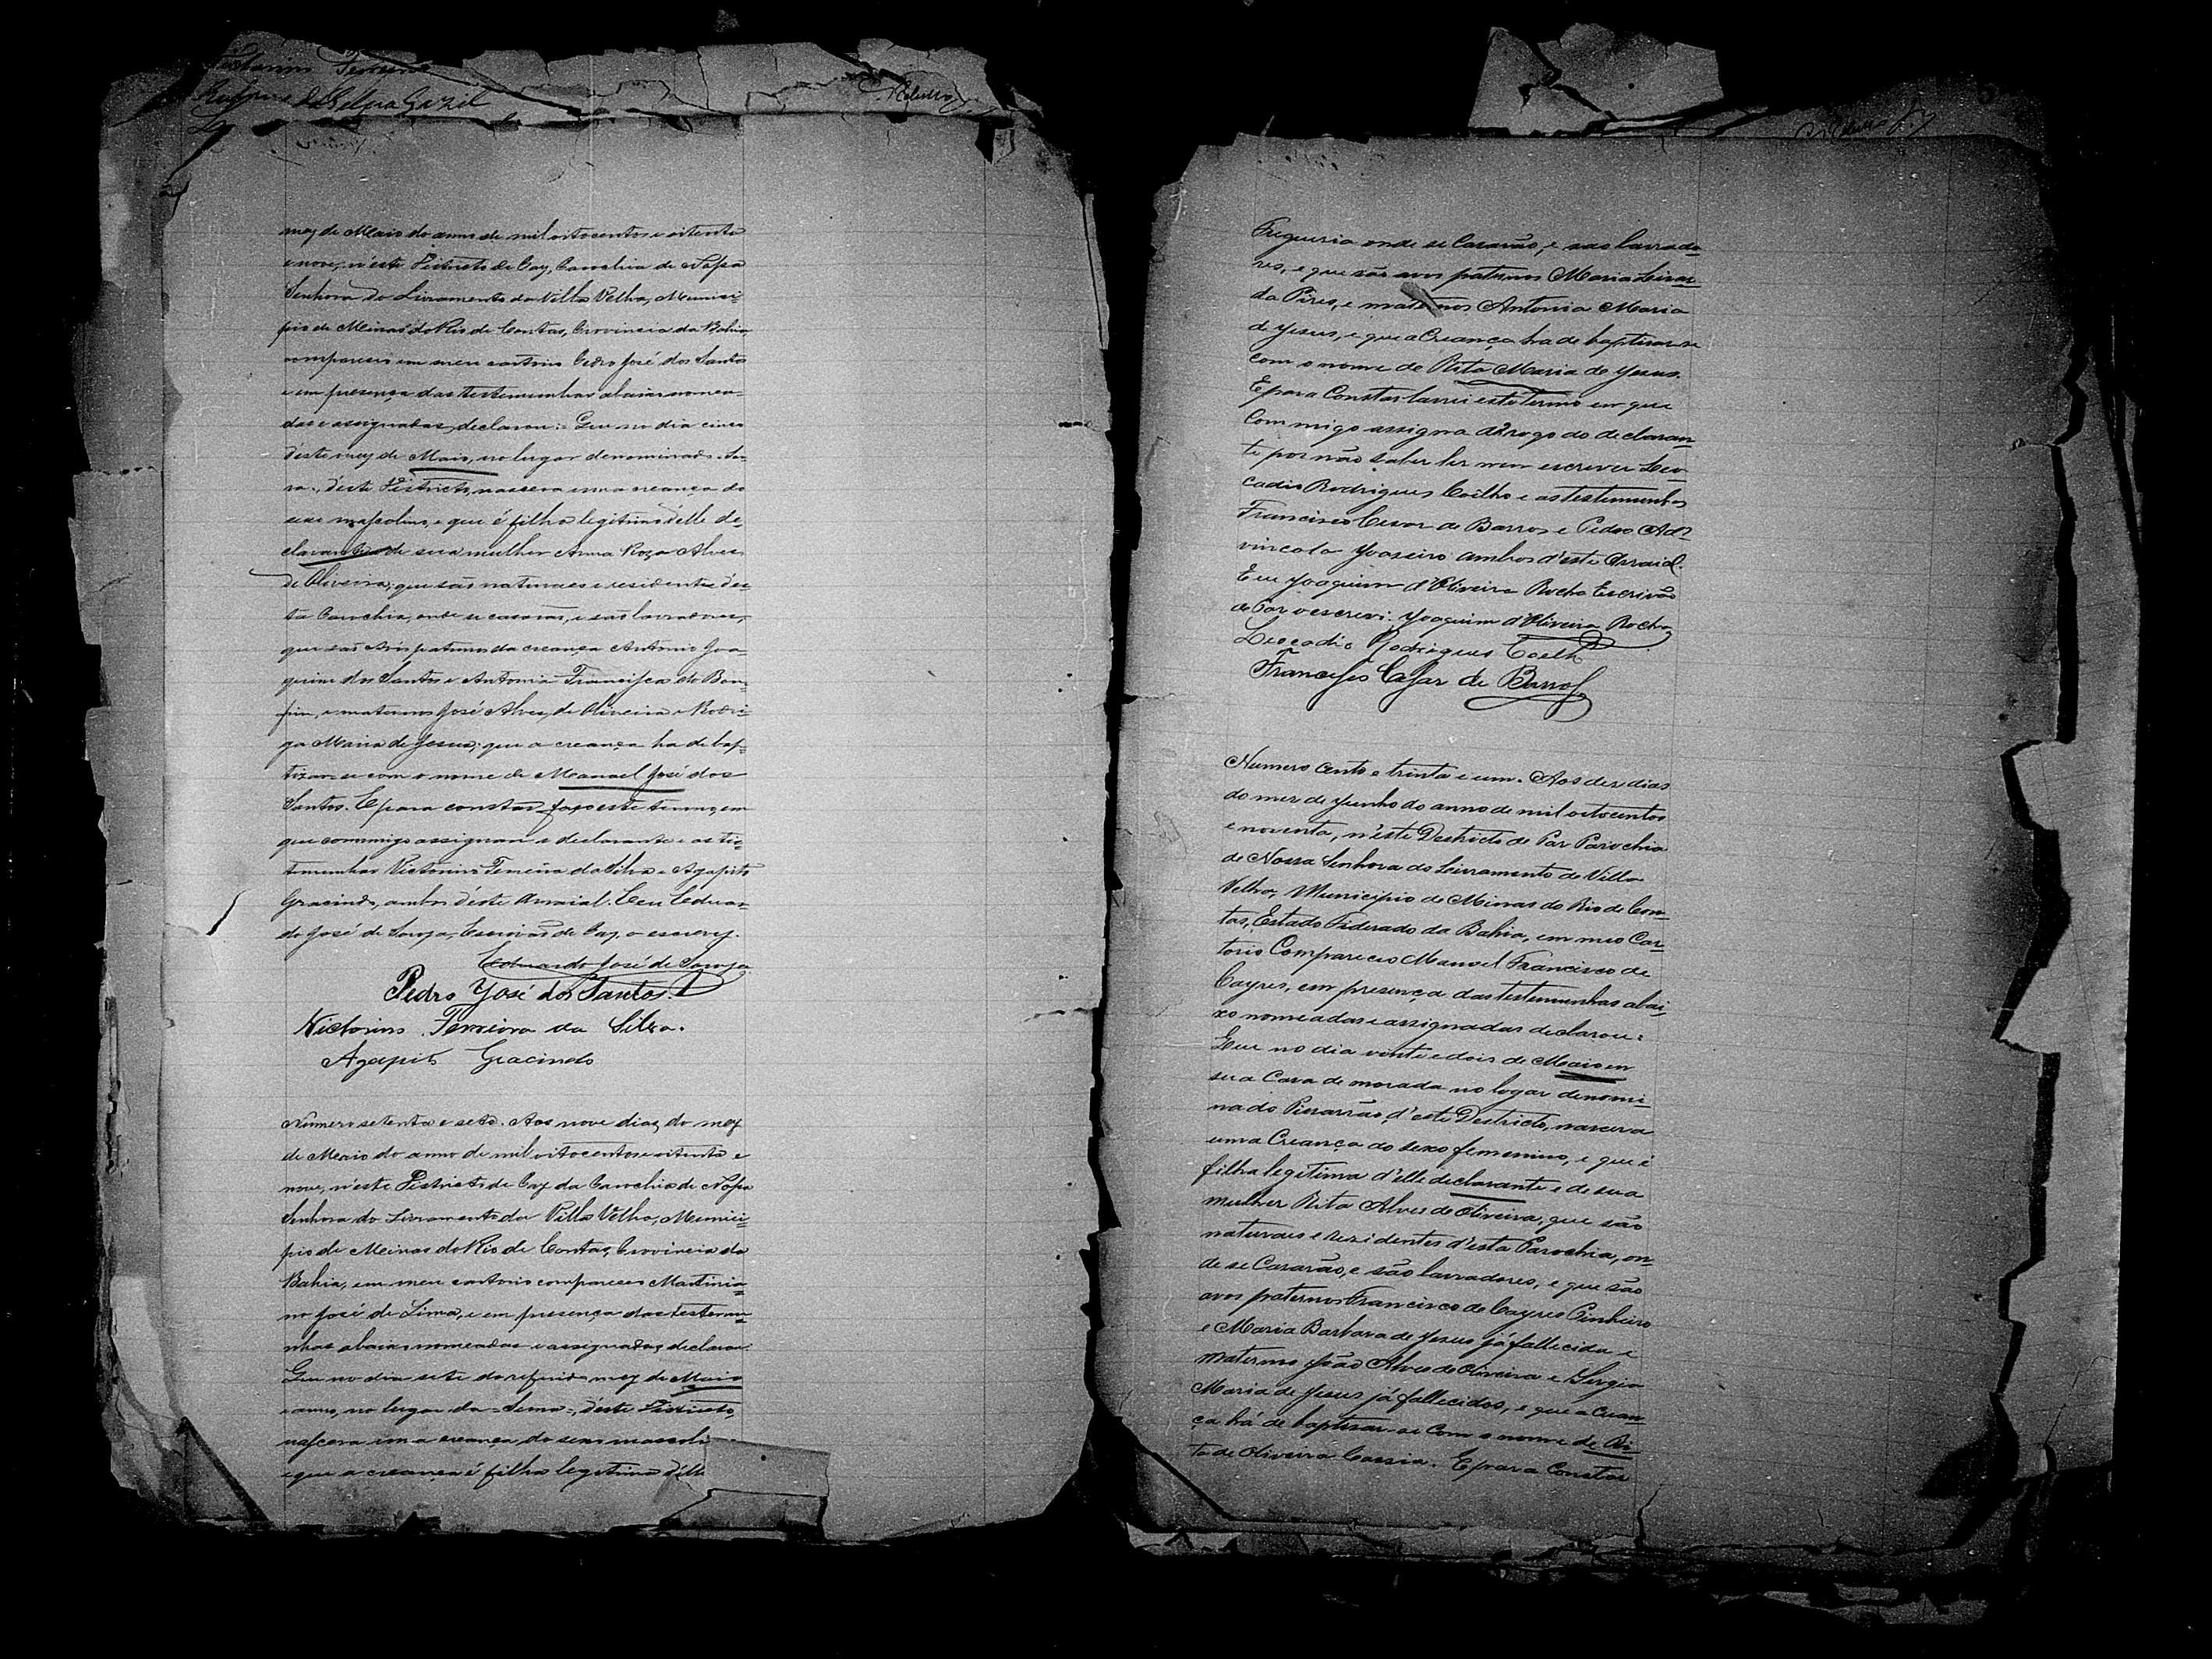 Victorino Ferreira
da Silva Gazil
Ribeiro
mez de Maio do anno de mil oitocentos e oitenta
e nove, n'este Districto de Paz, Parochia de Nossa
Senhora do Livramento da Villa Velha, Munici=
pio de Minas do Rio de Contas, Provincia da Bahia
compareceu em meu cartorio Pedro José dos Santos
e em presença das testemunhas abaixo nomea-
das e assignadas, declarou: Que no dia cinco
d'este mez de Maio, no lugar denominado
d'este Districto, nascera uma creança do
sexo masculino, e que é filho legitimo d'elle de-
clarante e de sua mulher Anna Roza Alves
de Oliveira, que são naturaes e residentes d'es-
ta Parochia, onde se casarão, e são lavradores,
que são Avós paternos da creança Antonio Joa-
quim dos Santos e Antonia Francisca do Bom-
fim, e maternos José Alves de Oliveira e Rodri-
ga Maria de Jesus; que a creança ha de bap-
tizar-se com o nome de Manoel José dos
Santos. E para constar faço este termo, em
que commigo assignam o declarante e as tes-
temunhas Victorino Ferreira da Silva e Agapito
Gracindo, ambos d'este Arraial. Eu Eduar-
do José de Souza, Escrivão de Paz, o escrevy.
Eduardo José de Souza
Pedro José dos Santos
Victorino Ferreira da Silva.
Agapito Gracindo
Numero setenta e sete. Aos nove dias do mez
de Maio do anno de mil oitocentos e oitenta e
nove, n'este Districto de Paz da Parochia de Nossa
Senhora do Livramento da Villa Velha, Munici=
pio de Minas do Rio de Contas, Provincia da
Bahia, em meu cartorio compareceu Martinia=
no José de Lima, e em presença das testemu=
nhas abaixo nomeadas e assignadas, declarou:
Que no dia sete do referido mez de Maio
e anno, no lugar da =Serra=, d'este Districto,
nascera uma creança do sexo masculi
e que a creança é filho legitimo d'elle
Freguesia onde se Casarão, e sao lavrado
res, e que são avos paternos Maria Leinar
da Pires, e maternos Antonia Maria
de Jesus, e que a Criança ha de baptisar-se
com o nome de Rita Maria de Jesus.
E para Constar lavrei este termo em que
Commigo assigna á rogo do declaran
te por não saber ler nem escrever Leo
cadio Rodrigues Coêlho e as testemunhas
Francisco Cesar de Barros e Pedro Ad
vincola Joaseiro ambos d'este Arraial.
Eu Joaquim d'Oliveira Rocha Escrivão
de Paz o escrevi. Joaquim d'Oliveira Rocha
Leocadio Rodrigues Coelho
Francisco Cesar de Barros
Numero cento e trinta e um. Aos dez dias
do mez de Junho do anno de mil oitocentos
e noventa, n'este Destricto de Paz Parochia
de Nossa Senhora do Livramento de Villa
Velha, Municipio de Minas do Rio de Con=
tas, Estado Fiderado da Bahia, em meo Car=
torio Compareceo Manoel Francisco de
Cayres, em presença das testemunhas abai=
xo nomeadas e assignadas declarou:
Que no dia vinte e dois de Maio em
sua Casa de morada no logar denomi=
nado Pissarrão, d'este Destricto, nascera
uma Creança do sexo femenino, e que é
filha legitima d'elle declarante e de sua
mulher Rita Alves de Oliveira, que são
naturaes e rezidentes d'esta Parochia, on=
de se Casarão, e são lavradores, e que são
avos paternos Francisco de Cayres Pinheiro
e Maria Barbara de Jesus já fallecida e
Maternos João Alves de Oliveira e Sergia
Maria de Jesus já fallecidos, e que a Crean=
ça há de baptisar-se Com o nome de Ri=
ta de Oliveira Cassia. E para Constar